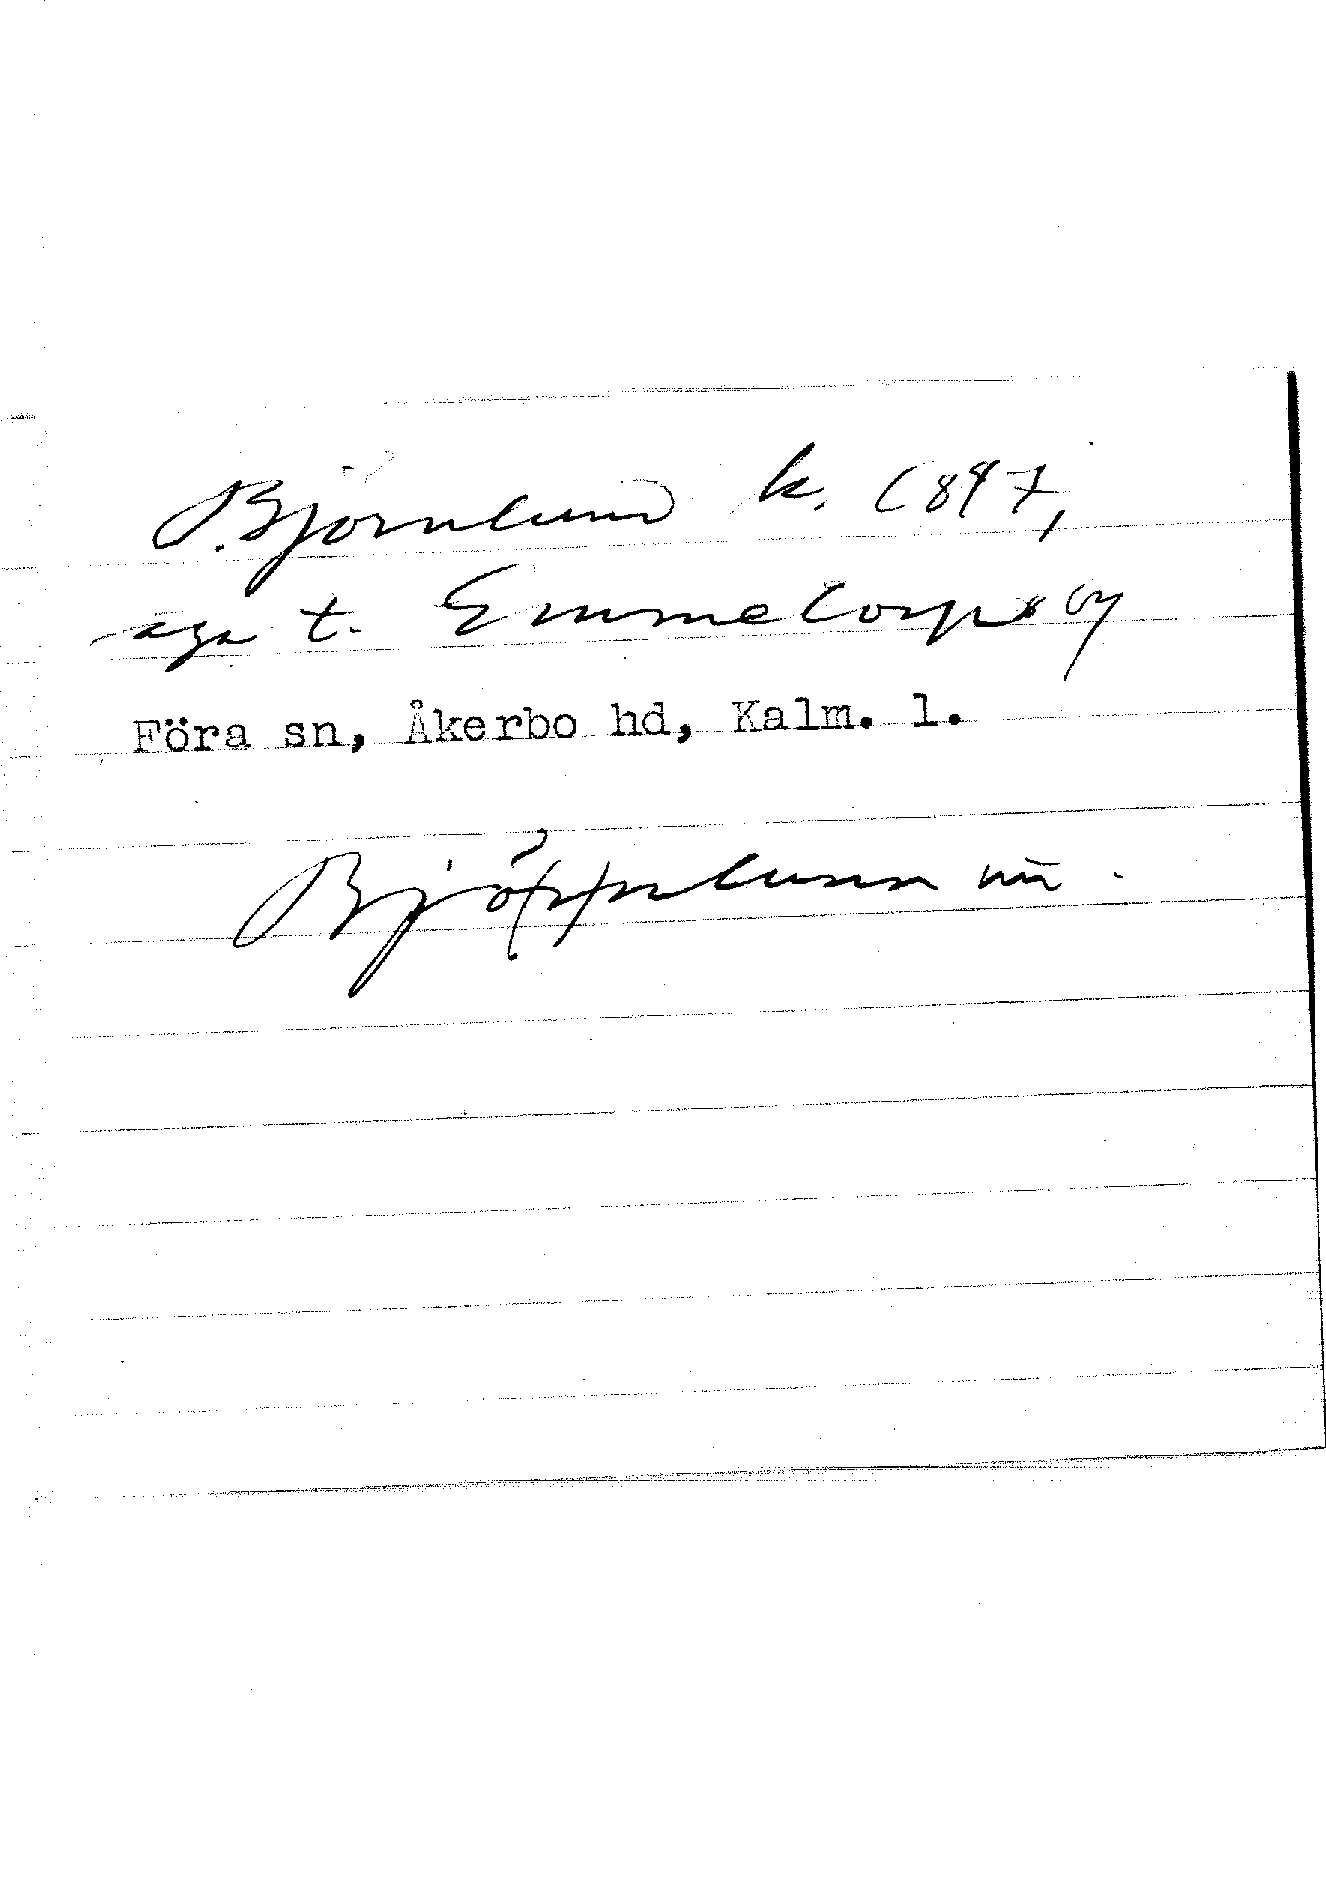 Björnlund k. 1847,
äga t. Emmetorps by
Föra sn, Åkerbo hd, Kalm. l.
Björnlunn